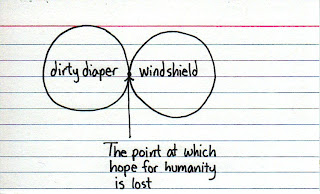 dirty diaper
windshield
The point at which
hope for humanity
is lost